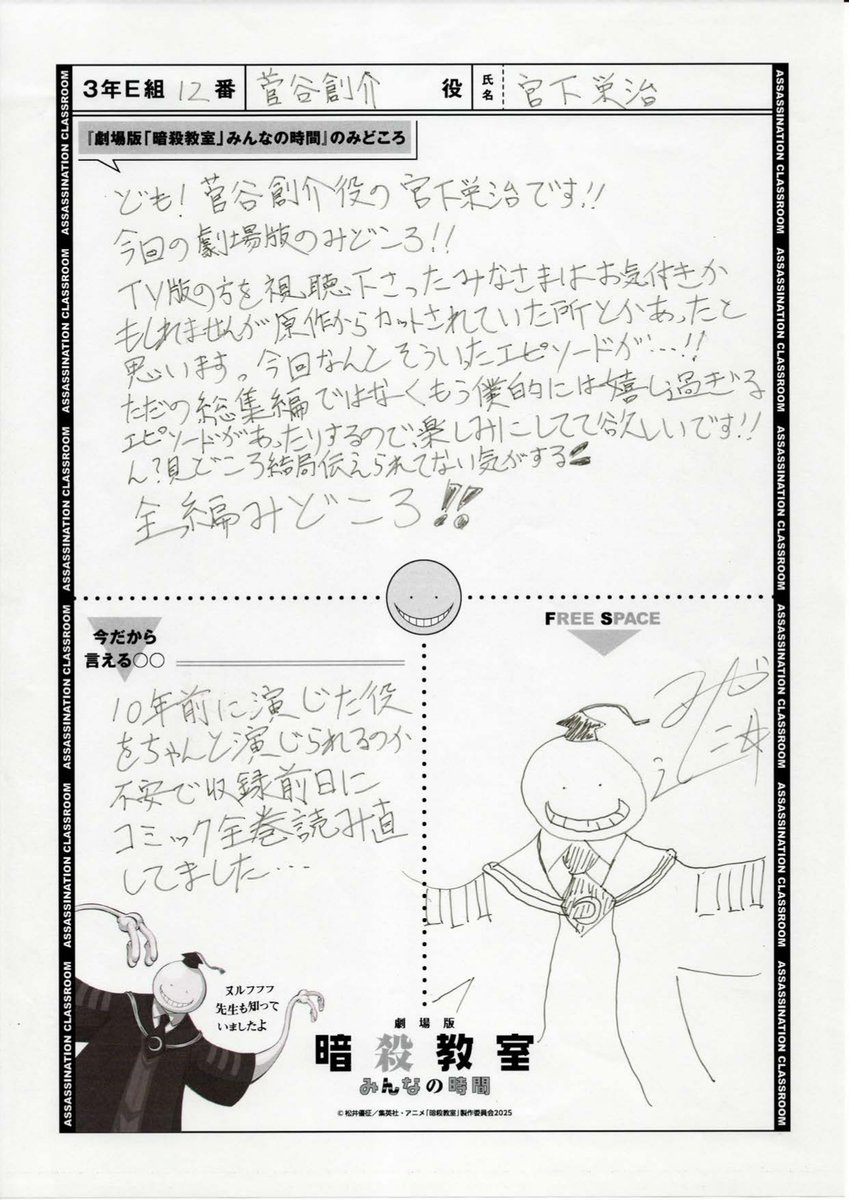 3年E組 12番 菅谷創介 役 氏名 宮下栄治
『劇場版「暗殺教室」みんなの時間』のみどころ
ども!菅谷創介役の宮下栄治です!!
今回の劇場版のみどころ!!
TV版の方を視聴下さったみなさまはお気付きか
もしれませんが原作からカットされていた所とかあったと
思います。今回なんとそういったエピソードが…!!
ただの総集編ではなくもう僕的には嬉し過ぎる
エピソードがあったりするので楽しみにしてて欲しいです!!
ん?見どころ結局伝えられてない気がする
全編みどころ!!
今だから
言える○○
10年前に演じた役
をちゃんと演じられるのか
不安で収録前日に
コミック全巻読み直
してました…
ヌルフフフ
先生も知って
いましたよ
FREE SPACE
劇場版
暗殺教室
みんなの時間
©松井優征/集英社・アニメ「暗殺教室」製作委員会2025
ASSASSINATION CLASSROOM ASSASSINATION CLASSROOM ASSASSINATION CLASSROOM ASSASSINATION CLASSROOM ASSASSINATION CLASSROOM ASSASSINATION CLASSROOM
ASSASSINATION CLASSROOM ASSASSINATION CLASSROOM ASSASSINATION CLASSROOM ASSASSINATION CLASSROOM ASSASSINATION CLASSROOM ASSASSINATION CLASSROOM